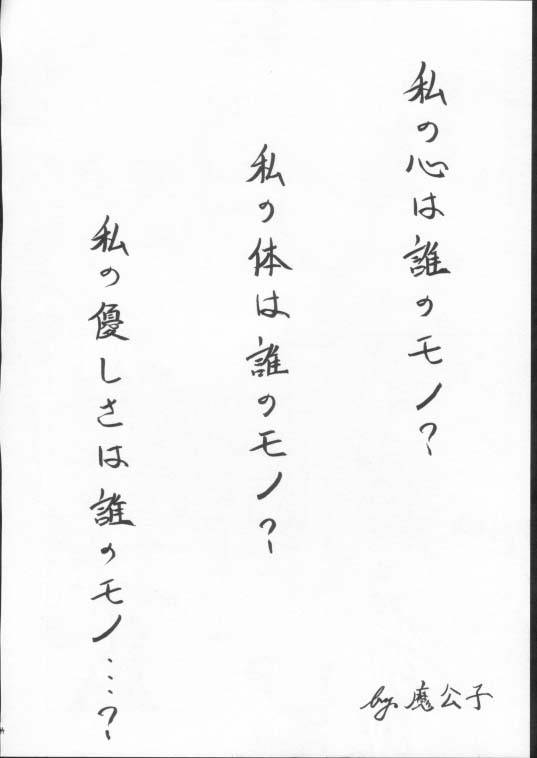 私の心は誰のモノ?
私の体は誰のモノ?
私の優しさは誰のモノ…?
by.魔公子